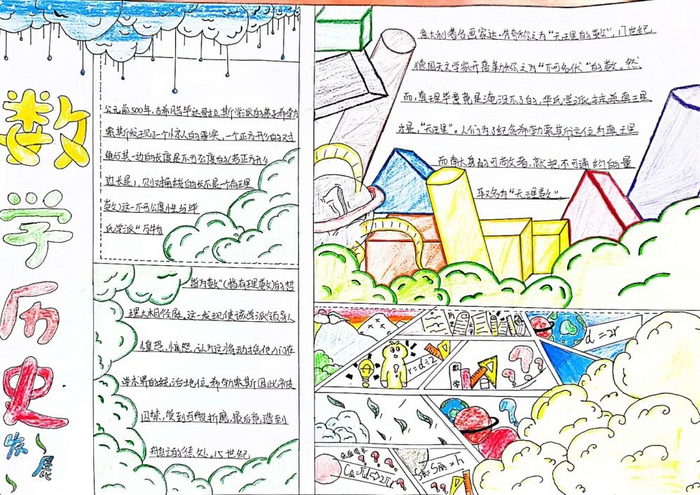 数学历史
发展
公元前500年,古希腊毕达哥拉斯学派的弟子希勃
索斯发现了一个惊人的事实,一个正方形的对
角线与其一边的长度是不可公度的(若正方形
边长是1,则对角线的长不是一个有理
数)这一不可公度性与毕
氏学派"万物
皆为数"(指有理数)的哲
理大相径庭。这一发现使该学派领导人
惶恐、恼怒,认为这将动摇他们在
学术界的统治地位。希勃索斯因此被
囚禁,受到百般折磨,最后竟遭到
的惩处。15世纪
意大利著名画家达·芬奇称之为"无理的数",17世纪
德国天文学家开普勒称之为"不可名状"的数。然
而,真理毕竟是淹没不了的,毕氏学派抹杀真理
才是"无理"。人们为了纪念希勃索斯这位为真理
而献身的可敬学者,就把不可通约的量
取名为"无理数"
d=2r
r=d÷2
数学
C=πd=2πr